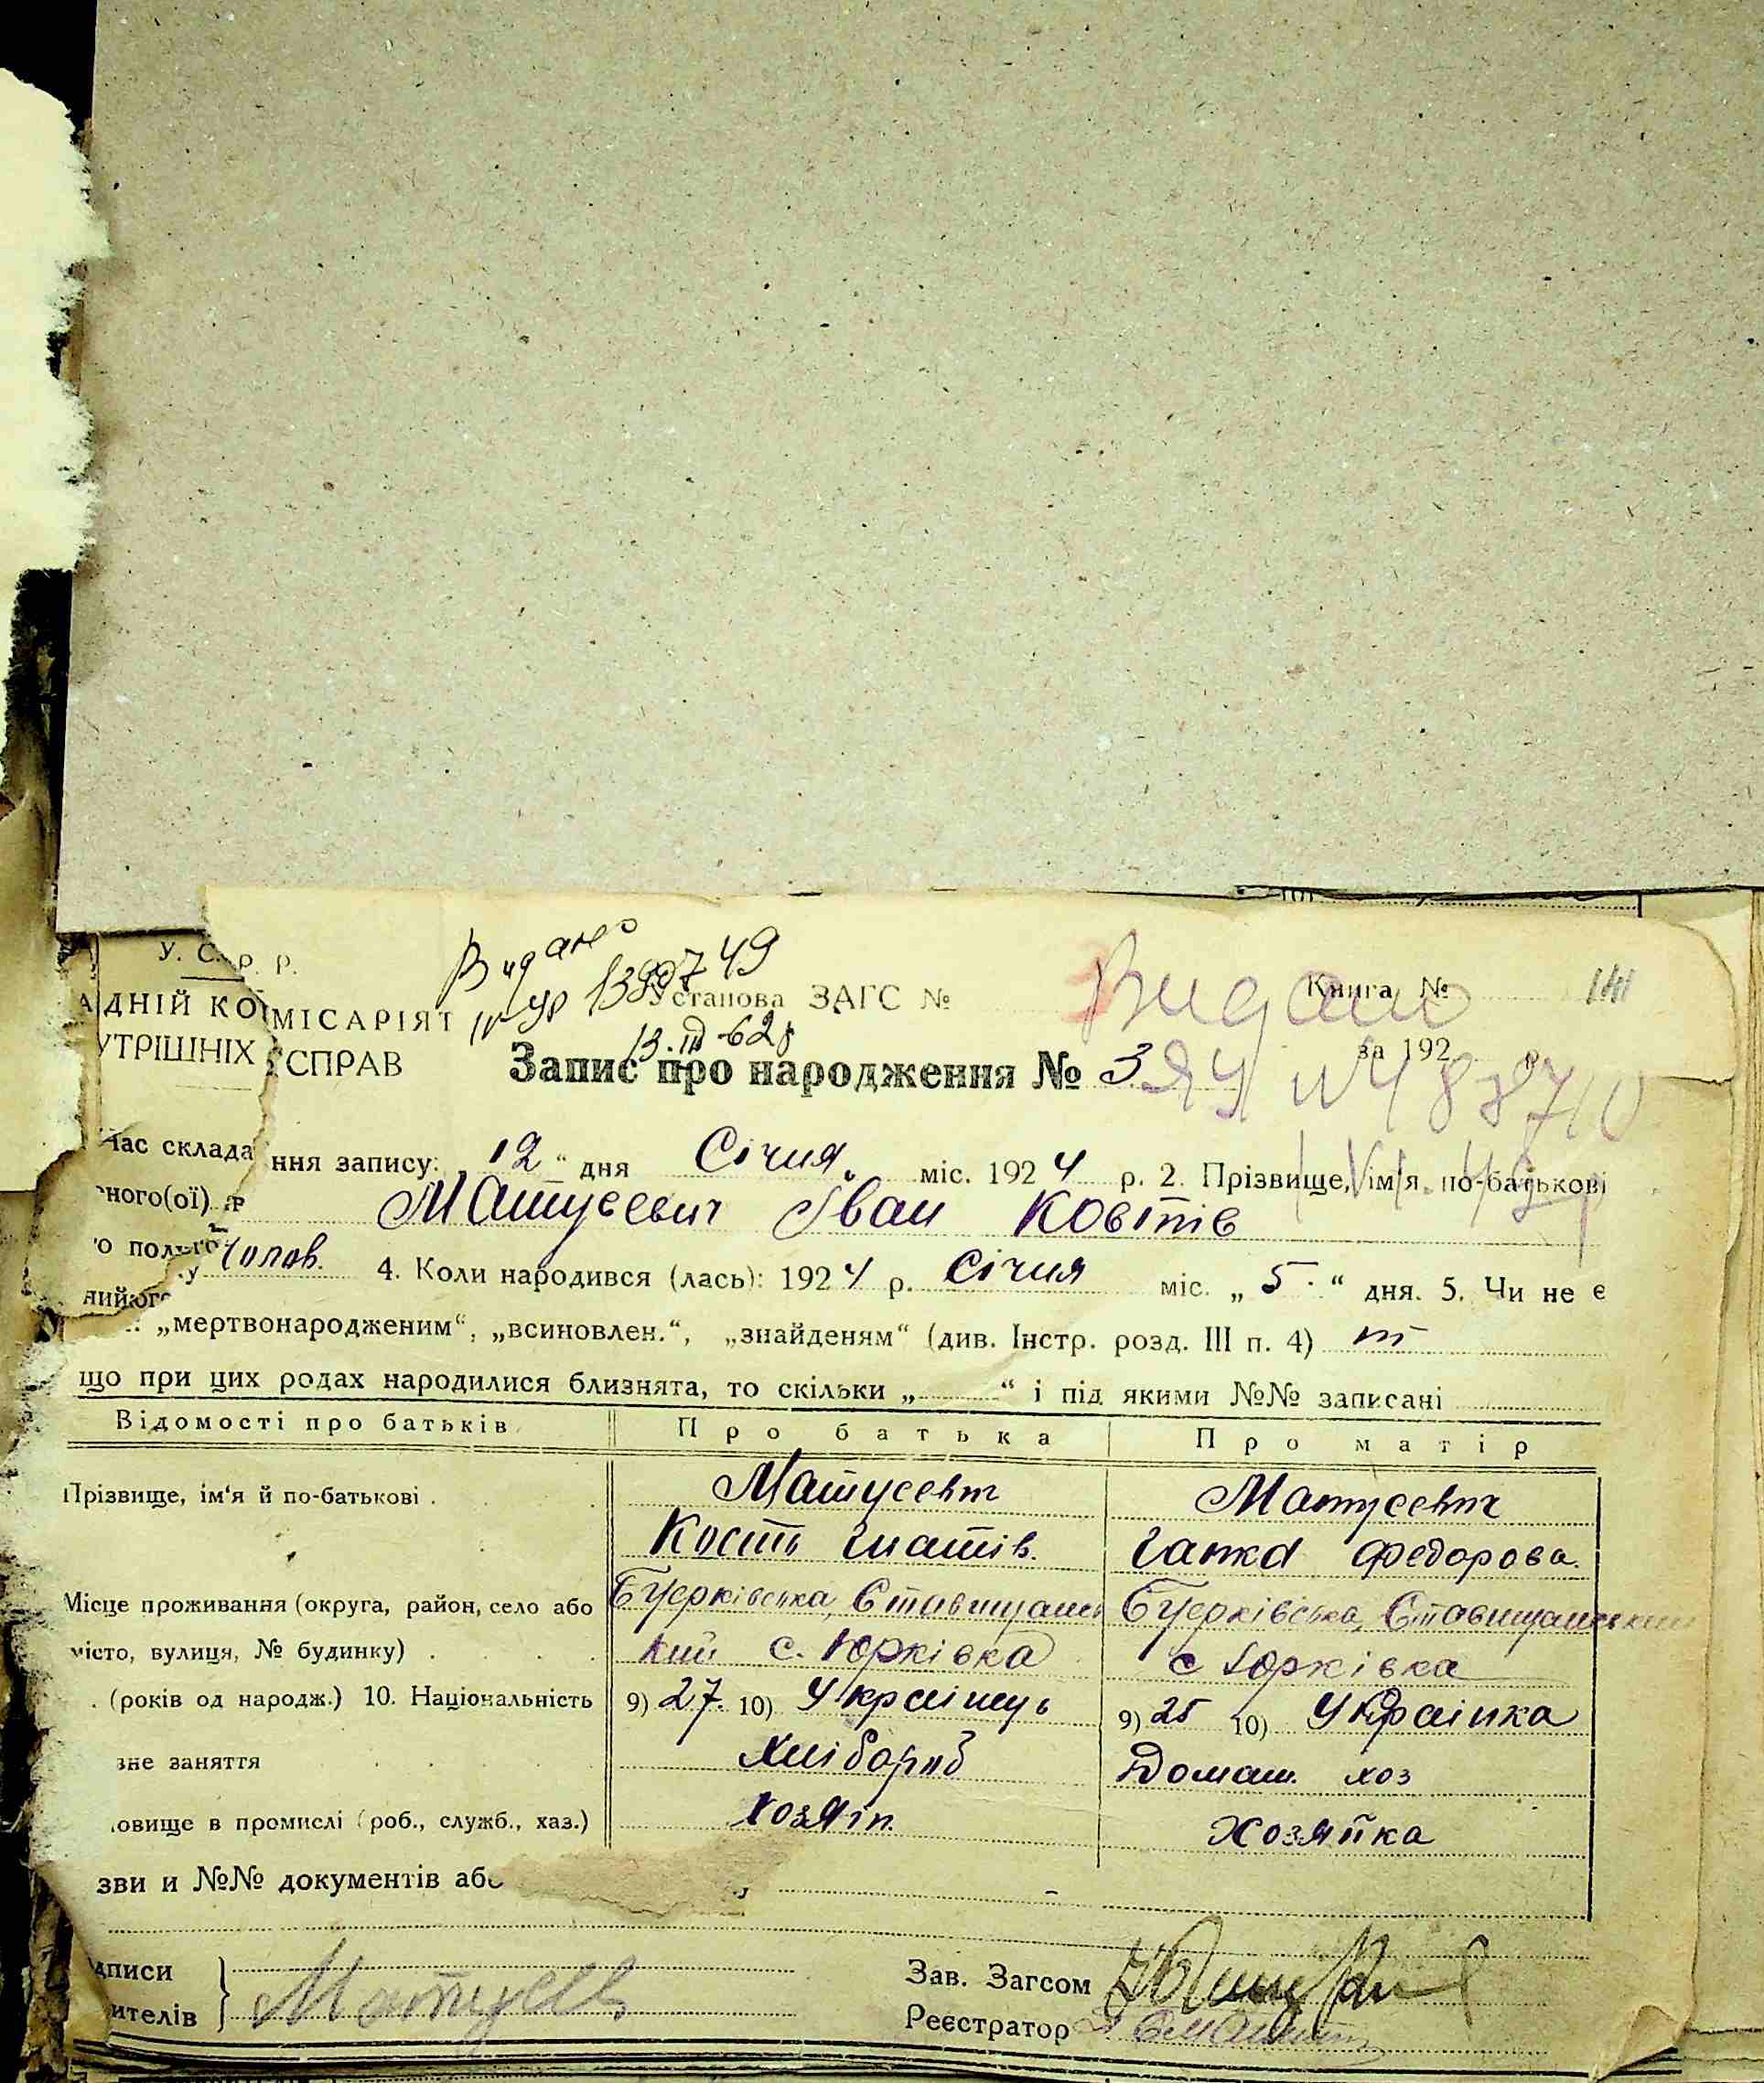 У. С. Р. Р.
Видано
Книга №
ДНІЙ КОМІСАРІЯТ
Установа ЗАГС №
Видано
УТРІШНІХ СПРАВ
13.III-62р
за 192 р.
Запис про народження № 3
Час складання запису: „12“ дня Січня міс. 1924 р. 2. Прізвище, ім'я по-батькові
ного(ої) Матусевич Іван Костів
о полу Чолов. 4. Коли народився (лась): 1924 р. Січня міс. „5“ дня. 5. Чи не є
„мертвонародженим“, „всиновлен.“, „знайденям“ (див. Інстр. розд. III п. 4) ні
що при цих родах народилися близнята, то скільки „ “ і під якими №№ записані
Відомості про батьків Про батька Про матір
Прізвище, ім'я й по-батькові Матусевич Матусевич
Кость Гнатів. Ганка Федорова.
Місце проживання (округа, район, село або Бцерківська, Ставищансь Бцерківська, Ставищанський
місто, вулиця, № будинку) кий с. Юрківка с Юрківка
(років од народж.) 10. Національність 9) 27. 10) Українець 9) 25 10) Українка
зне заняття Хлібороб Домаш. хоз
овище в промислі (роб., служб., хаз.) Хозяїн Хозяйка
зви и №№ документів або
дписи Матусев Зав. Загсом
ителів Реєстратор